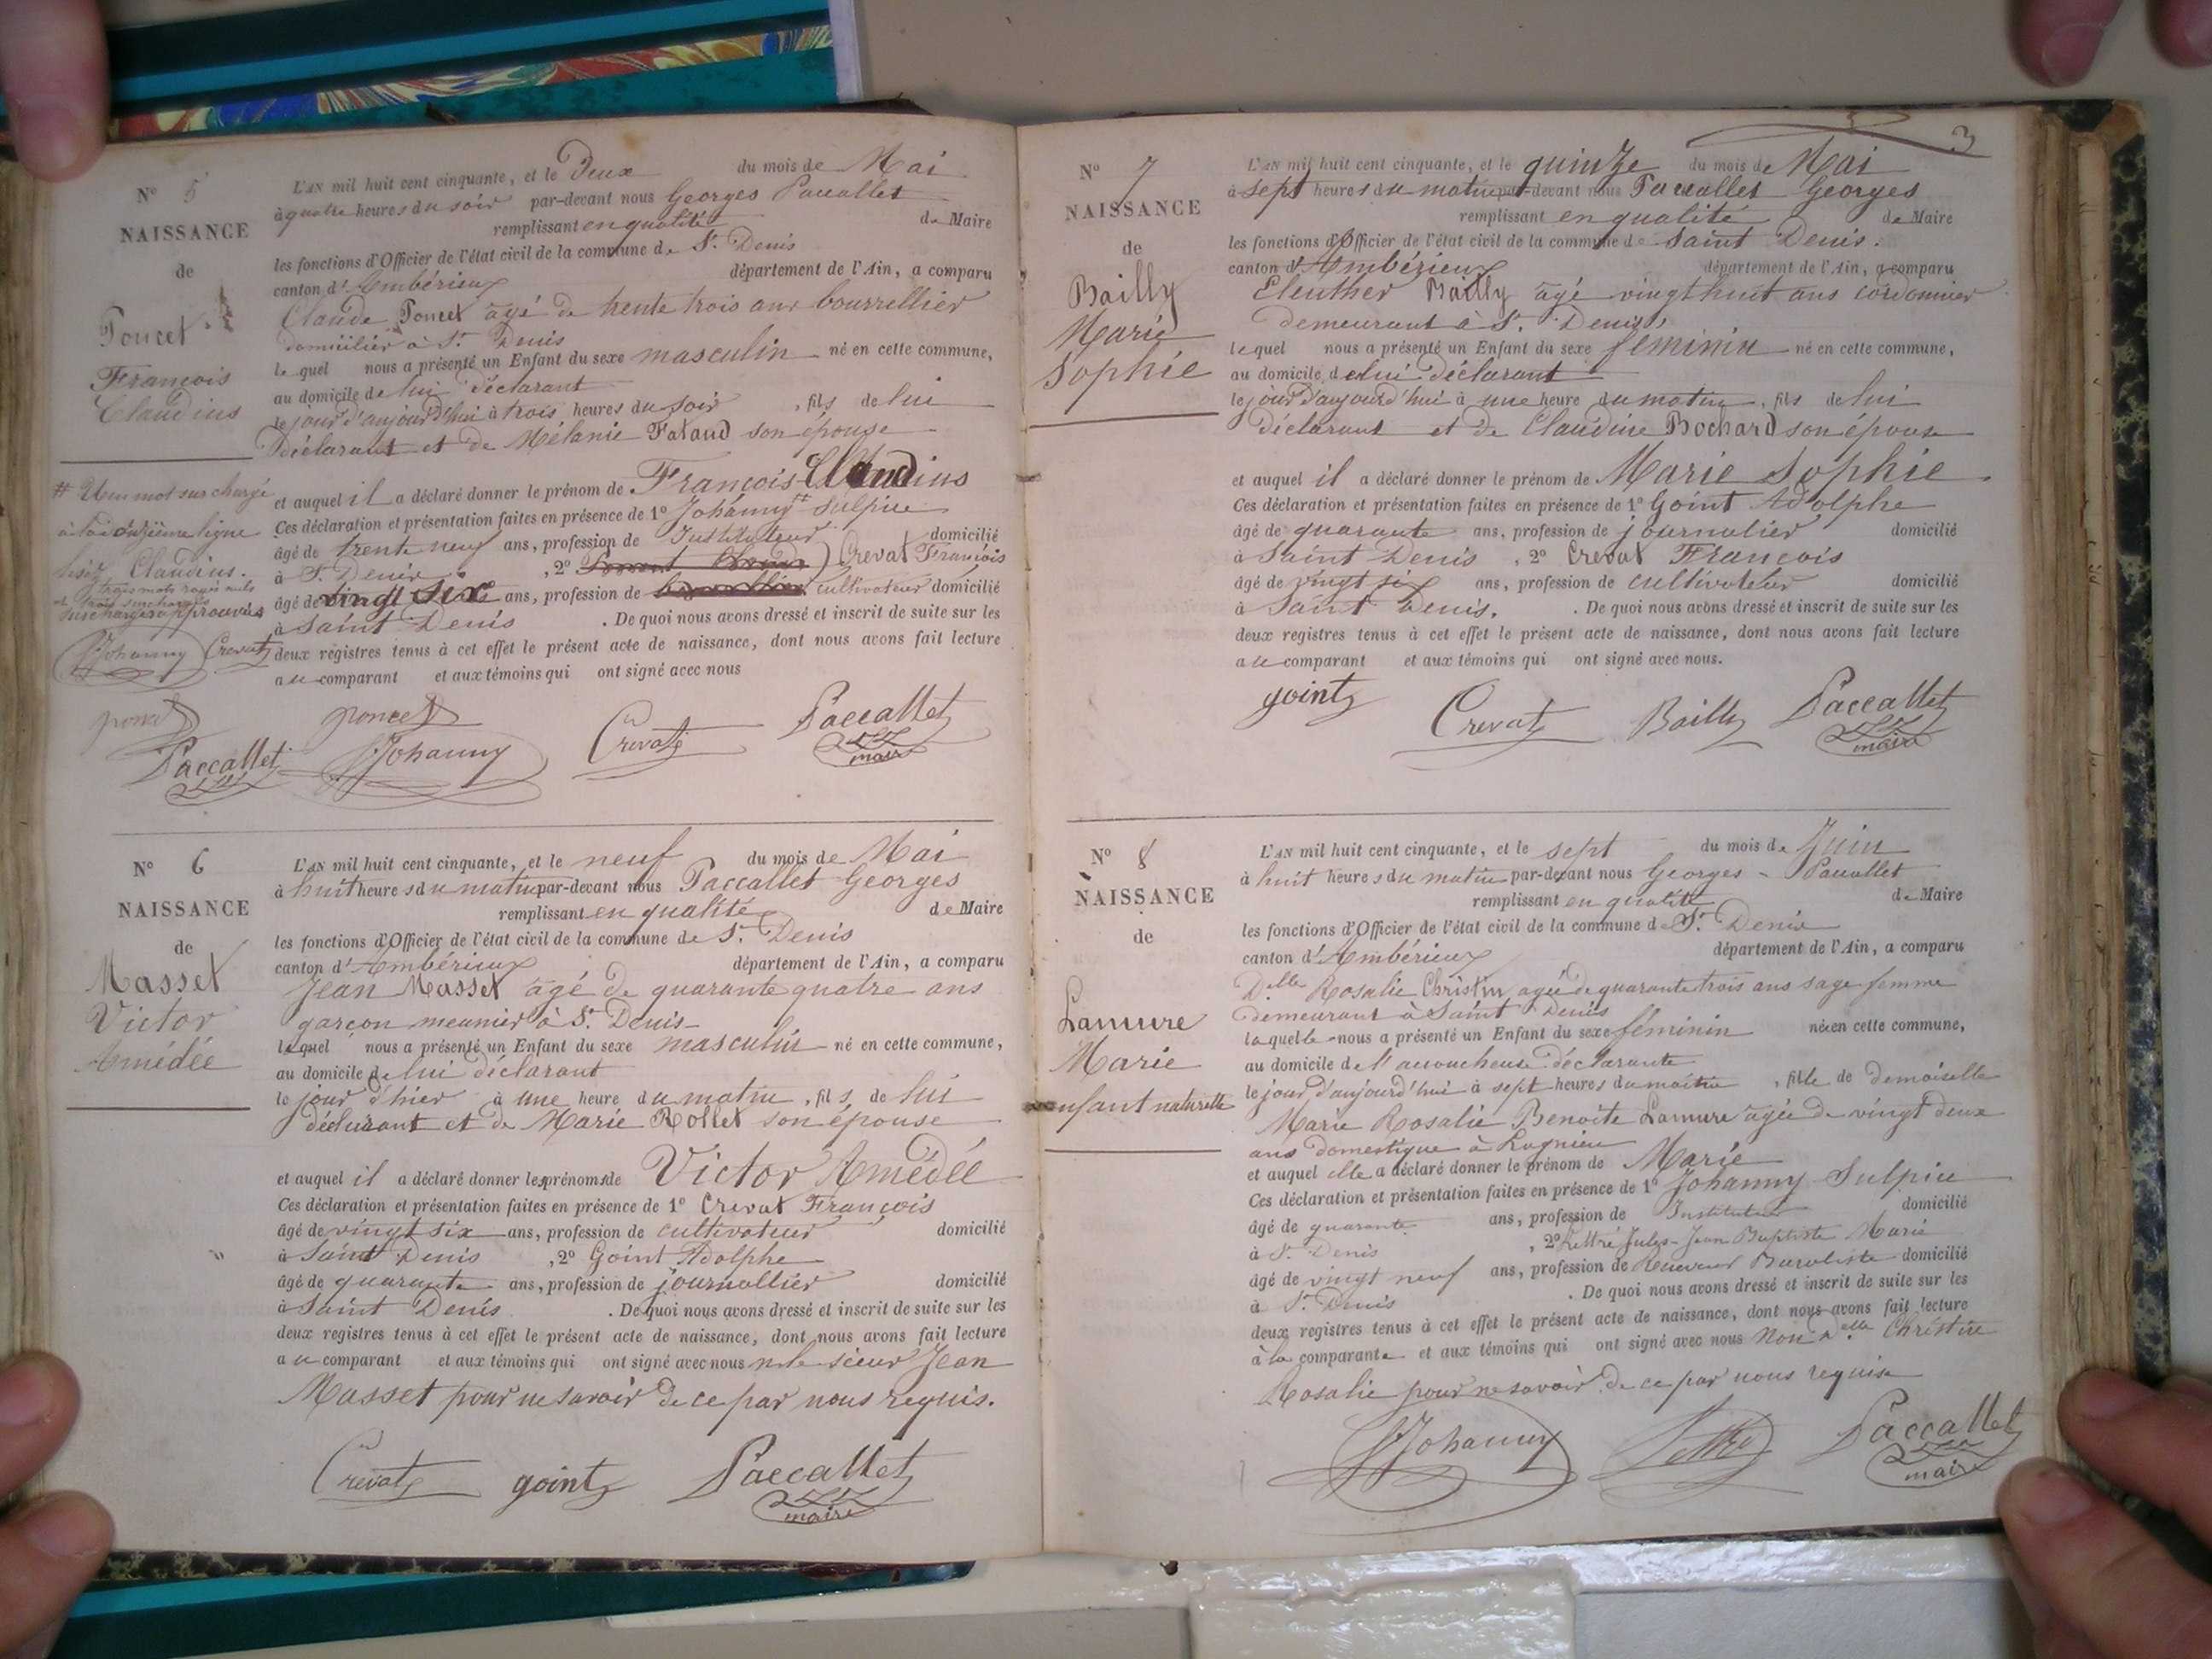 N° 5
NAISSANCE
de
Poncet
François
Claudius
# Un mot surchargé
à la onzième ligne
lisez Claudius.
trois mots rayés nuls
et trois surchargés
surcharges approuvés
Johanny Crevat
L'AN mil huit cent cinquante, et le Deux du mois de Mai
à quatre heures du soir par-devant nous Georges Paccallet
remplissant en qualité de Maire
les fonctions d'Officier de l'état civil de la commune de St. Denis
canton d'Ambérieux département de l'Ain, a comparu
Claude Poncet âgé de trente trois ans bourrellier
domicilier à St. Denis
lequel nous a présenté un Enfant du sexe masculin né en cette commune,
au domicile de lui déclarant
le jour d'aujourd'hui à trois heures du soir, fils de lui
Déclarant et de Mélanie son épouse
et auquel il a déclaré donner le prénom de François Claudius
Ces déclaration et présentation faites en présence de 1° Johanny # Sulpice
âgé de trente neuf ans, profession de Instituteur domicilié
à St. Denis, 2° Crevat François
âgé de vingt six ans, profession de cultivateur domicilié
à Saint Denis. De quoi nous avons dressé et inscrit de suite sur les
deux registres tenus à cet effet le présent acte de naissance, dont nous avons fait lecture
au comparant et aux témoins qui ont signé avec nous
poncet poncet Crevat Paccallet
maire
Paccallet Johanny
N° 6
NAISSANCE
de
Masset
Victor
Amédée
L'AN mil huit cent cinquante, et le neuf du mois de Mai
à huit heures du matin par-devant nous Paccallet Georges
remplissant en qualité de Maire
les fonctions d'Officier de l'état civil de la commune de St. Denis
canton d'Ambérieux département de l'Ain, a comparu
Jean Masset âgé de quarante quatre ans
garçon meunier à St. Denis
lequel nous a présenté un Enfant du sexe masculin né en cette commune,
au domicile de lui déclarant
le jour d'hier à une heure du matin, fils de lui
déclarant et de Marie Rollet son épouse
et auquel il a déclaré donner les prénoms de Victor Amédée
Ces déclaration et présentation faites en présence de 1° Crevat François
âgé de vingt six ans, profession de cultivateur domicilié
à Saint Denis, 2° Goint Adolphe
âgé de quarante ans, profession de journallier domicilié
à Saint Denis. De quoi nous avons dressé et inscrit de suite sur les
deux registres tenus à cet effet le présent acte de naissance, dont nous avons fait lecture
au comparant et aux témoins qui ont signé avec nous n. le sieur Jean
Masset pour ne savoir de ce par nous requis.
Crevat goint Paccallet
maire
3
N° 7
NAISSANCE
de
Bailly
Marie
Sophie
L'AN mil huit cent cinquante, et le quinze du mois de Mai
à sept heures du matin par-devant nous Paccallet Georges
remplissant en qualité de Maire
les fonctions d'Officier de l'état civil de la commune de Saint Denis.
canton d'Ambérieux département de l'Ain, a comparu
Eleuther Bailly âgé vingt huit ans cordonnier
demeurant à St. Denis,
lequel nous a présenté un Enfant du sexe féminin né en cette commune,
au domicile de lui déclarant
le jour d'aujourd'hui à une heure du matin, fils de lui
déclarant et de Claudine Bochard son épouse
et auquel il a déclaré donner le prénom de Marie Sophie
Ces déclaration et présentation faites en présence de 1° Goint Adolphe
âgé de quarante ans, profession de journalier domicilié
à Saint Denis, 2° Crevat François
âgé de vingt six ans, profession de cultivateur domicilié
à Saint Denis. De quoi nous avons dressé et inscrit de suite sur les
deux registres tenus à cet effet le présent acte de naissance, dont nous avons fait lecture
au comparant et aux témoins qui ont signé avec nous.
goint Crevat Bailly Paccallet
maire
N° 8
NAISSANCE
de
Lamure
Marie
enfant naturelle
L'AN mil huit cent cinquante, et le sept du mois de Juin
à huit heures du matin par-devant nous Georges - Paccallet
remplissant en qualité de Maire
les fonctions d'Officier de l'état civil de la commune de St. Denis
canton d'Ambérieux département de l'Ain, a comparu
Delle Rosalie Christin agée de quarante trois ans sage femme
demeurant à Saint Denis
laquelle nous a présenté un Enfant du sexe féminin née en cette commune,
au domicile de l'accoucheuse déclarante
le jour d'aujourd'hui à sept heures du matin, fille de demoiselle
Marie Rosalie Benoite Lamure agée de vingt deux
ans domestique à Lagnieu
et auquel elle a déclaré donner le prénom de Marie
Ces déclaration et présentation faites en présence de 1° Johanny Sulpice
âgé de quarante ans, profession de Instituteur domicilié
à St. Denis, 2° Lettré Jules-Jean Baptiste Marie
âgé de vingt neuf ans, profession de Receveur Buraliste domicilié
à St. Denis. De quoi nous avons dressé et inscrit de suite sur les
deux registres tenus à cet effet le présent acte de naissance, dont nous avons fait lecture
à la comparante et aux témoins qui ont signé avec nous Non Delle Christin
Rosalie pour ne savoir de ce par nous requise
Johanny Lettré Paccallet
maire